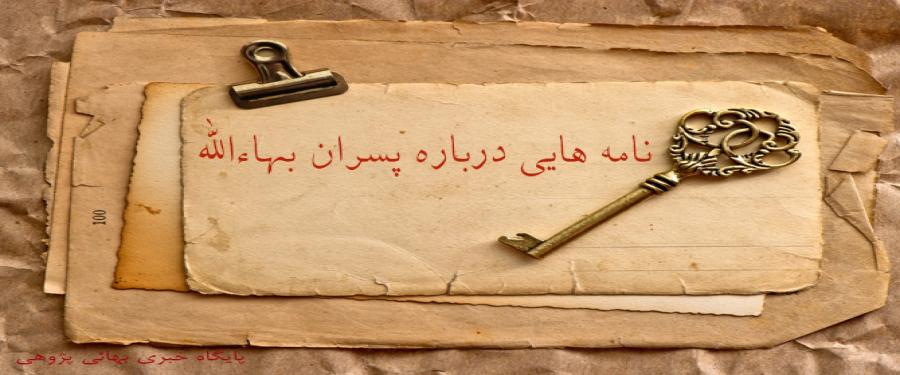 نامه هایی درباره پسران بهاءالله
100
پایگاه خبری بهائی پژوهی